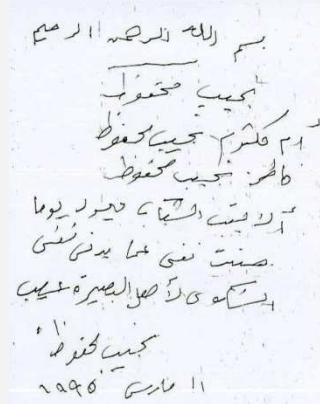 بسم الله الرحمن الرحيم
نجيب محفوظ
أم كلثوم نجيب محفوظ
فاطمة نجيب محفوظ
ألا ليت الشباب يعود يوما
صنت نفسى عما يدنس نفسى
الشكوى لأهل البصيرة عيب
نجيب محفوظ
١١ مارس ١٩٩٥